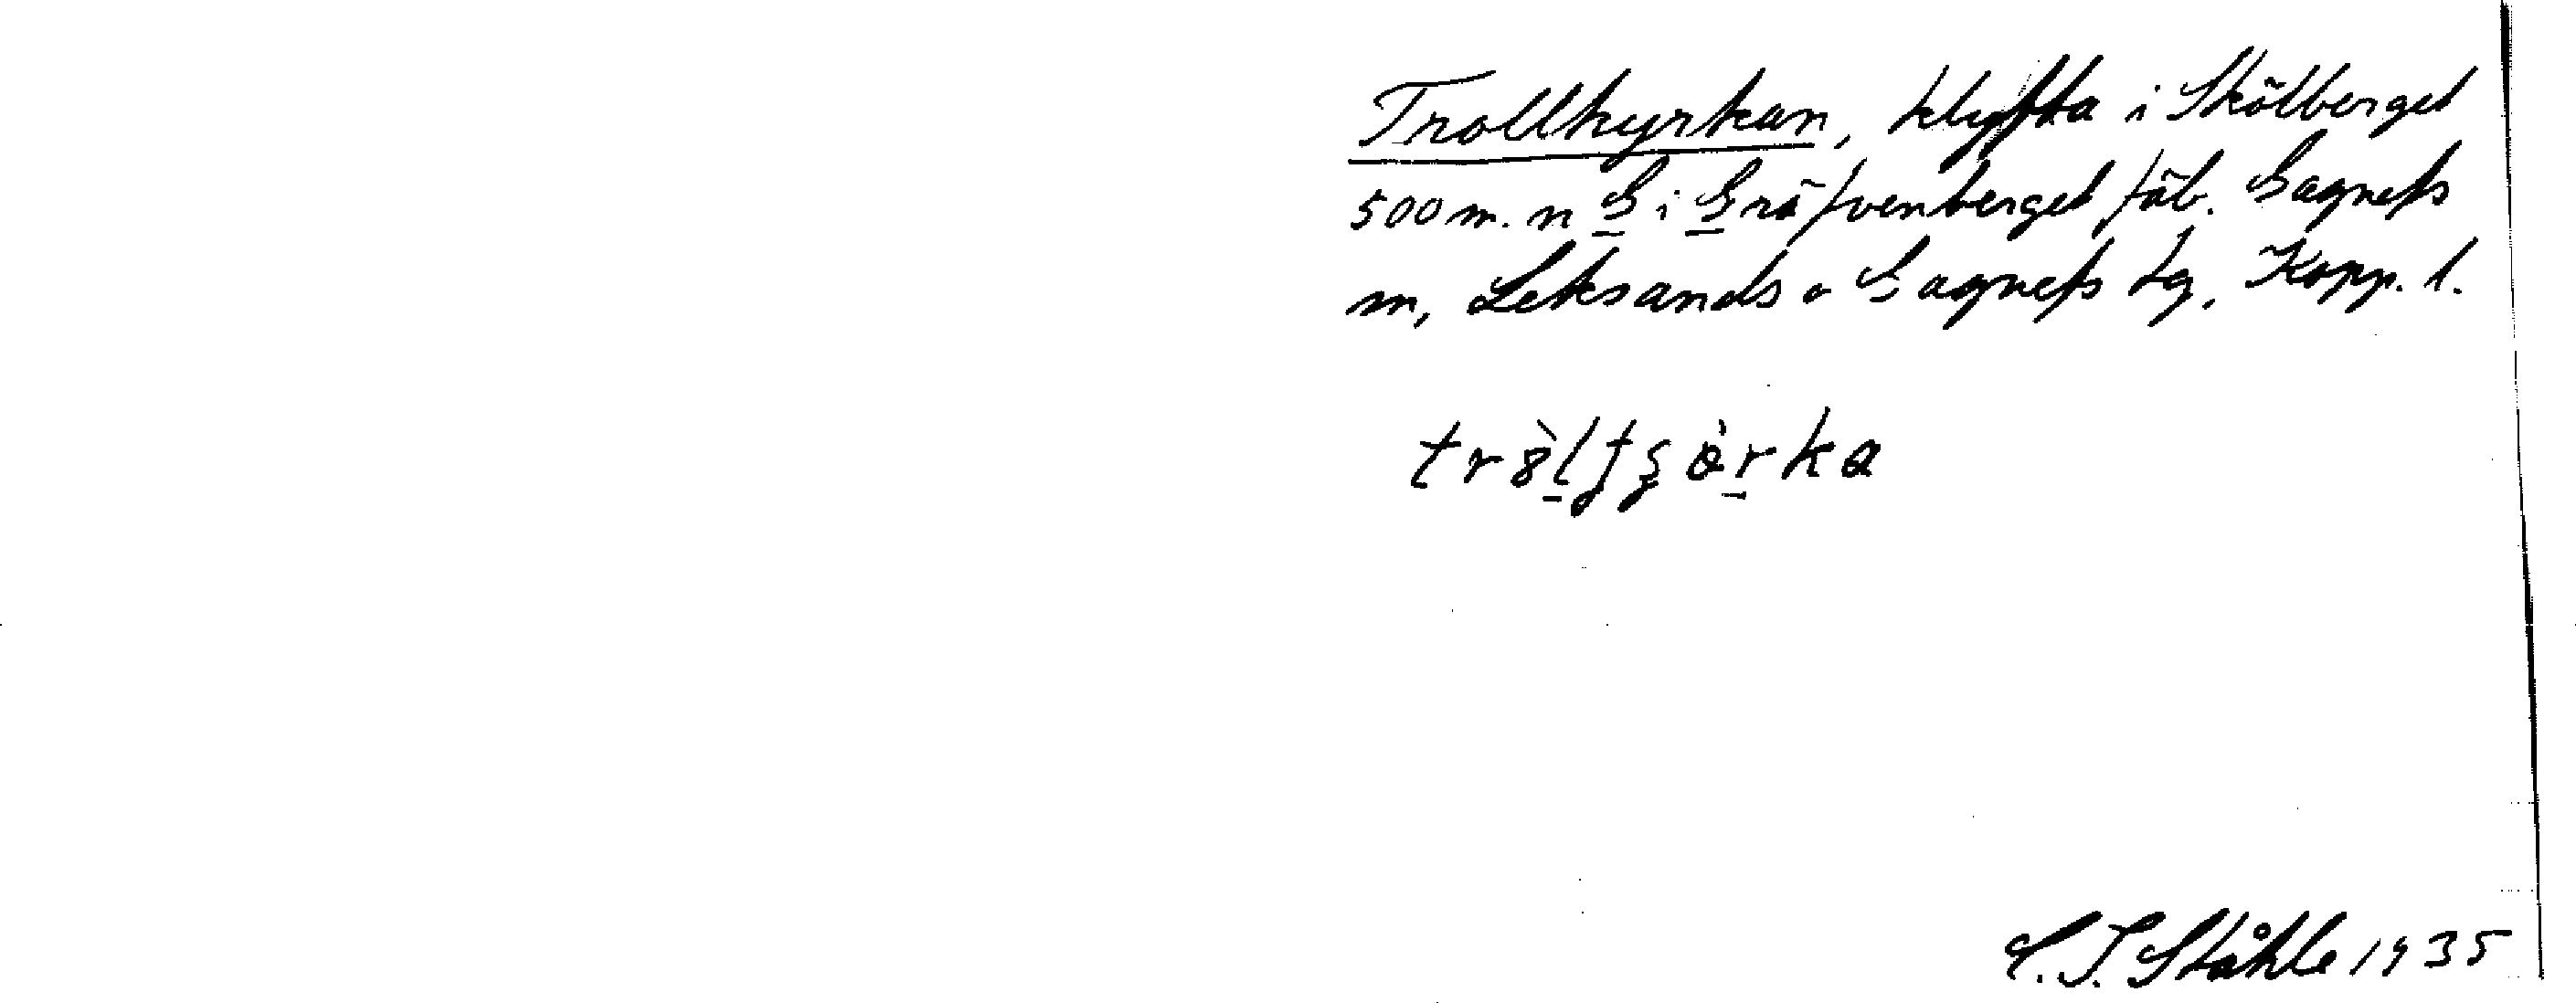 Trollkyrkan, klyfta i Skålberget
500 m. n G i Gräfvenberget fäb. Gagnefs
m, Leksands o Gagnefs tg, Kopp. l.
C. I. Ståhle 1935